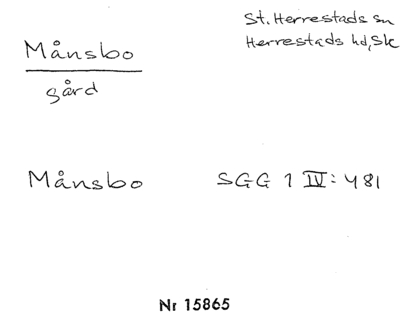 St. Herrestads sn
Herrestads hd, Sk
Månsbo
gård
Månsbo SGG 1 IV: 481
Nr 15865